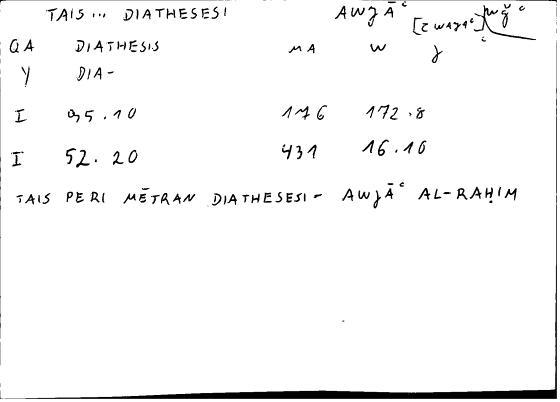 TAIS... DIATHESESI AWJĀʿ [Z WAJAʿ] wǧʿ
QA DIATHESIS MA W J
Y DIA-
I 95.10 176 172.8
I 52.20 431 16.10
TAIS PERI MĒTRAN DIATHESESI - AWJĀʿ AL-RAḤIM